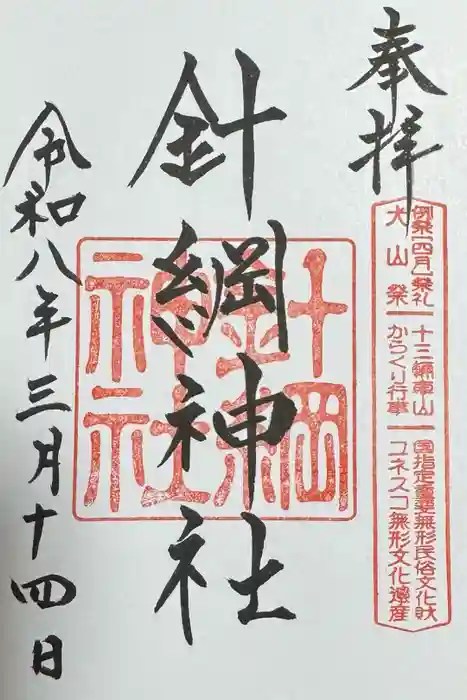 奉拝
例祭(四月)祭礼
犬山祭
十三輛車山
からくり行事
国指定重要無形民俗文化財
ユネスコ無形文化遺産
針綱神社
針綱
神社
令和八年三月十四日